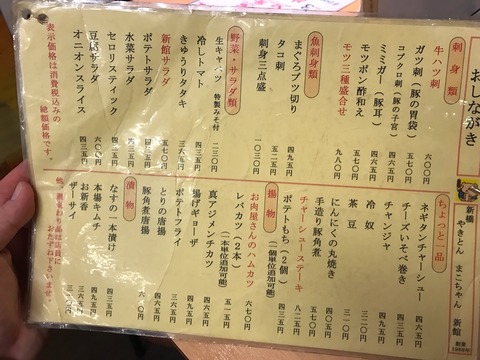 おしながき
新橋 やきとん まこちゃん 新館
創業1968年
刺身類
牛ハツ刺 六〇〇円
ガツ刺(豚の胃袋)
コブクロ刺(豚の子宮) 五七〇円
ミミガー(豚耳) 四六五円
モツポン酢和え 五一五円
モツ三種盛合せ 九八〇円
魚刺身類
まぐろブツ切り 四九五円
タコ刺 五二五円
刺身三点盛 一〇三〇円
野菜・サラダ類
生キャベツ 特製みそ付 二三〇円
冷しトマト
きゅうりタタキ 三六五円
新館サラダ 五七〇円
ポテトサラダ
水菜サラダ 四三五円
セロリスティック
豆腐サラダ 六〇〇円
オニオンスライス 四三五円
表示価格は消費税込みの
総額価格です。
ちょっと一品
ネギタンチャーシュー 四六五円
チーズいそべ巻き
チャンジャ
冷奴
茶豆 三一〇円
にんにくの丸焼き
手造り豚角煮
チャーシューステーキ 八二五円
ポテトもち(2個)
(一個単位追加可能) 四三五円
揚物
お肉屋さんのハムカツ 六七〇円
レバカツ(2本)
(一本単位追加可能) 五一五円
真アジメンチカツ
揚げギョーザ 四九五円
ポテトフライ 三六五円
とりの唐揚
豚角煮唐揚 六七〇円
漬物
なすの一本漬け 四三五円
本場キムチ 四九五円
お新香 四三五円
ザーサイ